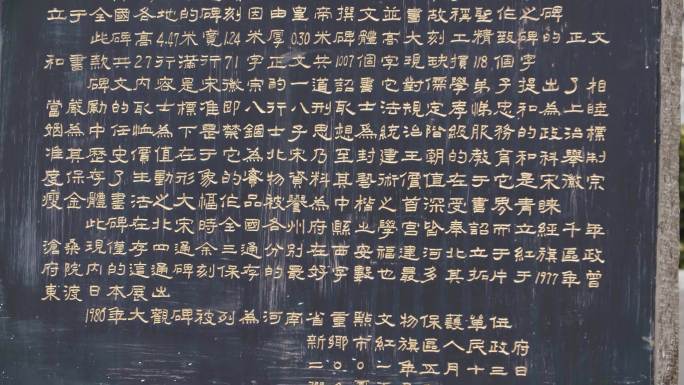 立于全國各地的碑刻因由皇帝撰文並書故稱聖作之碑
此碑高4.47米寬1.24米厚0.30米碑體高大刻工精致碑的正文
和書款共27行滿行71字正文1007個字現缺損118個字
碑文内容是宋徽宗的一道詔書它對儒學弟子提出了相
當嚴勵的取士標准即八行八刑取士法定孝悌忠和為上睦
姻為中任恤為下要禁錮士子思想為統治階級服務的政治標
准其歷史價值在于它為北宋乃至封建王朝的教育和科舉制
度保存了生動形象的資料其藝術價值在于它是宋徽宗
瘦金體書法之大幅作品被譽為楷之首深受書界青睞
此碑在北宋時全國各州府縣學宫皆有而立經千年
滄桑現僅存四通余三通分別在西安河北紅旗區政
府院内的這通碑刻保存的最好字蹟也最多其拓片于1977年曾
東渡日本展出
1980年大觀碑被列為河南省重點文物保護單位
新鄉市紅旗區人民政府
二〇〇年五月十三日